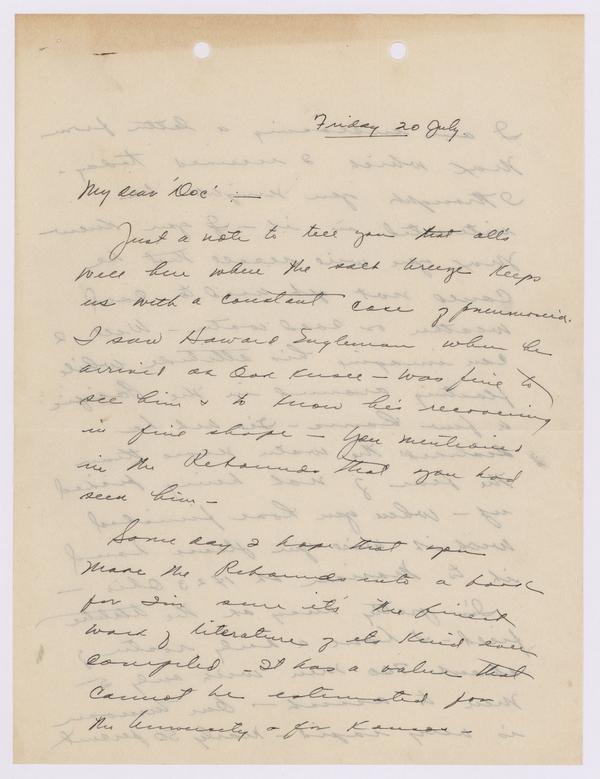 Friday 20 July
My dear 'Doc' :—
Just a note to tell you that all's
well here where the salt breeze keeps
us with a constant case of pneumonia.
I saw Howard Engleman when he
arrived at Oak Knoll – was fine to
see him & to know he's recovering
in fine shape – You mentioned
in the Rebounds that you had
seen him –
Some day I hope that you
make the Rebounds into a book
for I'm sure it's the finest
work of literature of its kind ever
compiled – It has a value that
cannot be estimated for
the University & for Kansas –